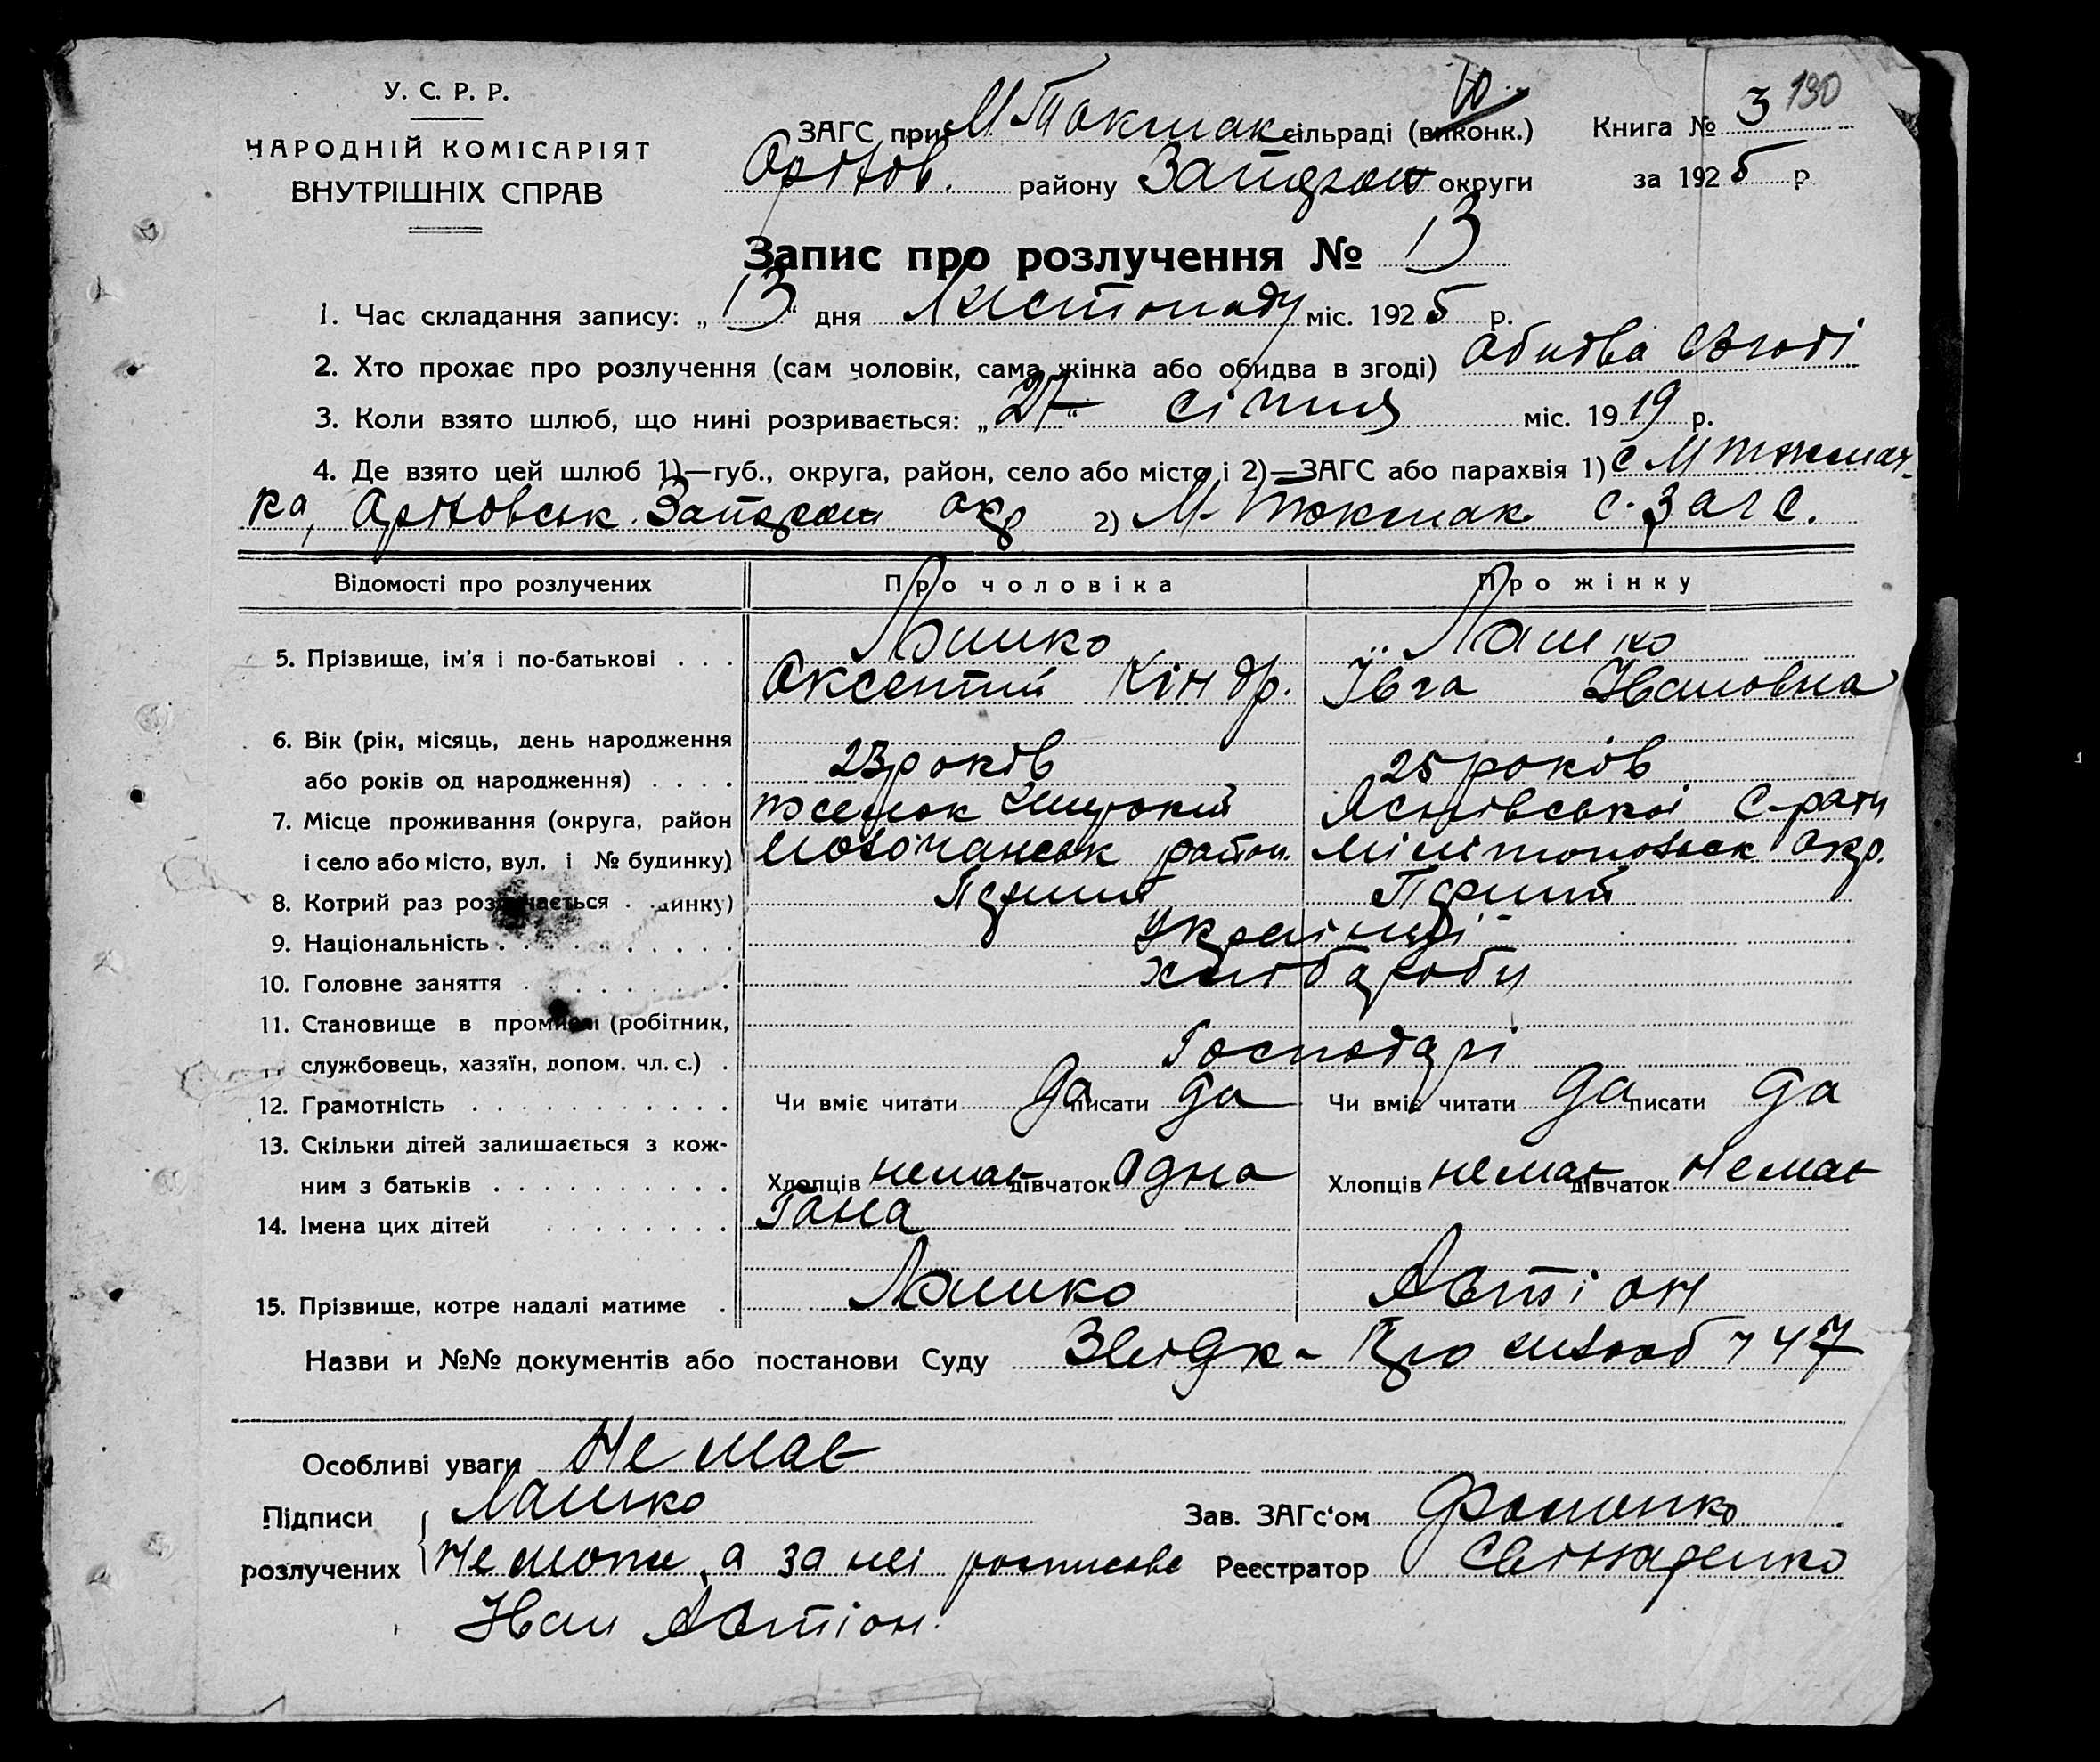 У. С. Р. Р.
НАРОДНІЙ КОМІСАРІЯТ
ВНУТРІШНІХ СПРАВ
ЗАГС при М Токмак сільраді (виконк.)
Оріхов. району Запоріж округи
Книга № 3 130
за 1925 р.
Запис про розлучення № 13
1. Час складання запису: „13" дня Листопаду міс. 1925 р.
2. Хто прохає про розлучення (сам чоловік, сама жінка або обидва в згоді) Обидва взгоді
3. Коли взято шлюб, що нині розривається: „27" січня міс. 1919 р.
4. Де взято цей шлюб 1)—губ., округа, район, село або місто і 2)—ЗАГС або парахвія 1) с М Токмач-
ка, Оріховськ. окр 2) М-Токмак с. загс.
Відомості про розлучених Про чоловіка Про жінку
5. Прізвище, ім'я і по-батькові . . . Лашко Лашко
Оксентий Кіндр. Ївга Ивановна
6. Вік (рік, місяць, день народження
або років од народження) . . . . 23 років 25 років
7. Місце проживання (округа, район Широкий С-ради
і село або місто, вул. і № будинку) Молочанськ район. окр.
8. Котрий раз розлучається . динку) Перший Перший
9. Національність . . . . . . . . . . Українці
10. Головне заняття . . . . . . . . . хлібороби
11. Становище в промислі (робітник,
службовець, хазяїн, допом. чл. с.) . Господарі
12. Грамотність . . . . . . . . . . . Чи вміє читати да писати да Чи вміє читати да писати да
13. Скільки дітей залишається з кож-
ним з батьків . . . . . . . . . . Хлопців немає дівчаток Одна Хлопців немає дівчаток Немає
14. Імена цих дітей . . . . . . . . Гана
15. Прізвище, котре надалі матиме . Лашко Автіон
Назви и №№ документів або постанови Суду Про шлюб 47
Особливі уваги Не має
Підписи Лашко Зав. ЗАГс'ом Фоменко
розлучених а за неі росписавс Реєстратор
Иван Автіон.